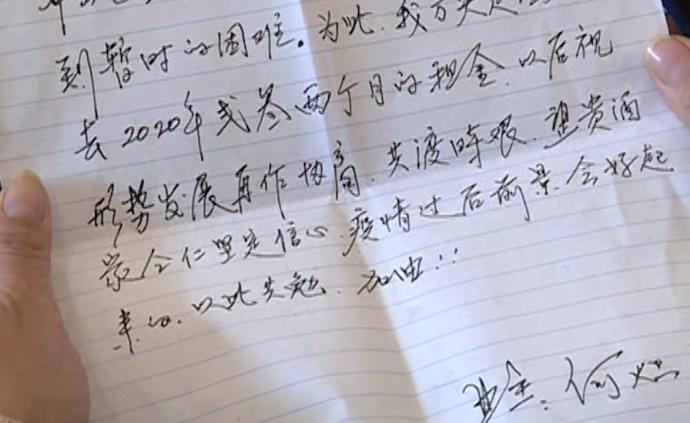 到暂时的困难。为此,我方决定
去2020年弍叁两个月的租金,以后视
形势发展再作协商,共渡时艰,望贵酒
家仝仁坚定信心,疫情过后前景会好起
来的,以此共勉,加油!!
业主:何